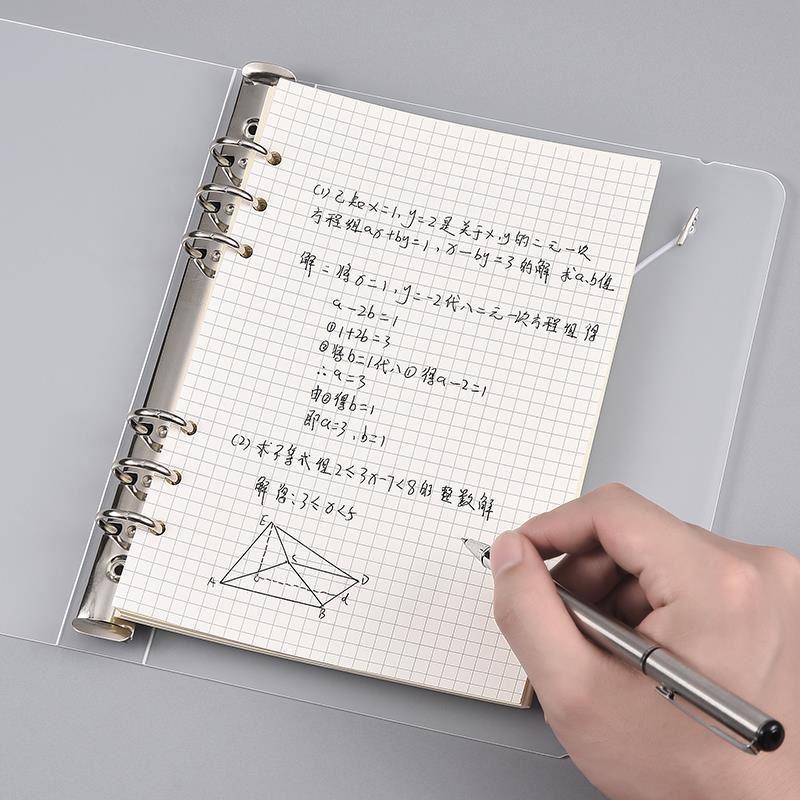 (1)已知x=1,y=2是关于x,y的二元一次
方程组ax+by=1,x-by=3的解 求a,b值
解=将x=1,y=-2代八二元一次方程组得
a-2b=1
①1+2b=3
②将b=1代八①得a-2=1
∴a=3
由②得b=1
即a=3、b=1
(2)求不等式组2≤3x-7<8的整数解
解得:3≤x<5
E
C
A
D
d
B